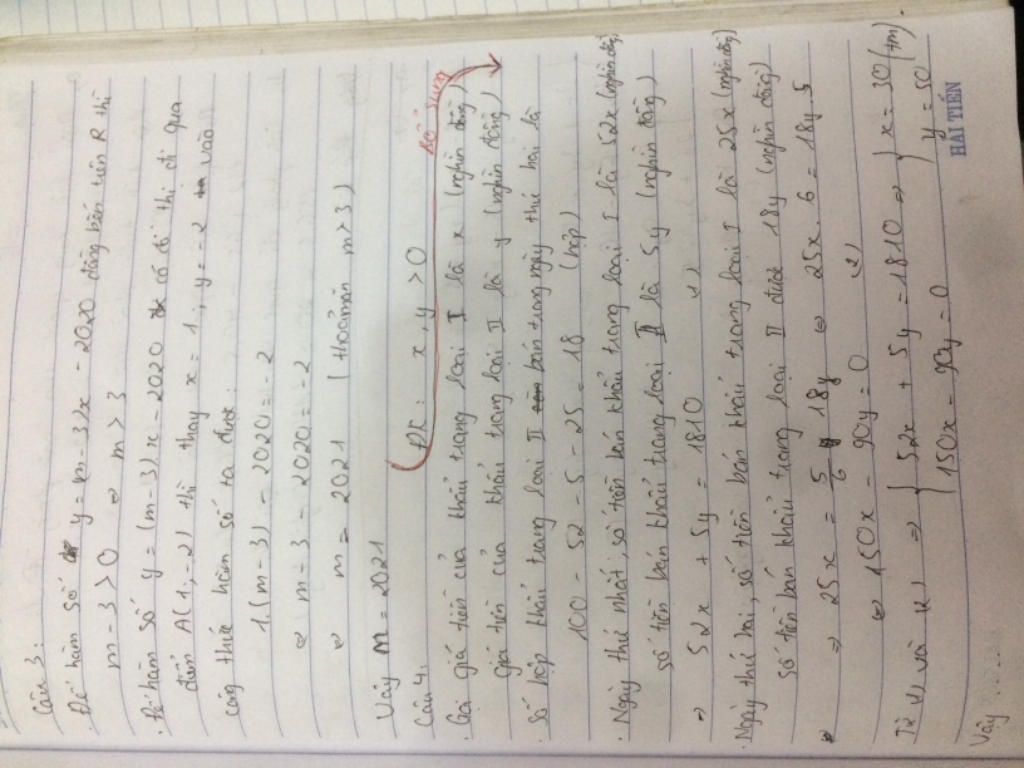 Câu 3:
Để hàm số y = (m-3)x - 2020 đồng biến trên R thì
m - 3 > 0 ⇔ m > 3
. Để hàm số y = (m-3)x - 2020 có đồ thị đi qua
điểm A(1,-2) thì thay x = 1 ; y = -2 vào
công thức hàm số ta được:
1.(m-3) - 2020 = -2
⇔ m - 3 - 2020 = -2
⇔ m = 2021 (thoả mãn m > 3)
Vậy m = 2021
Câu 4: (ĐK: x, y > 0 bổ sung
. Gọi giá tiền của khẩu trang loại I là x (nghìn đồng)
giá tiền của khẩu trang loại II là y (nghìn đồng)
. Số hộp khẩu trang loại II bán trong ngày thứ hai là
100 - 52 - 5 - 25 = 18 (hộp)
. Ngày thứ nhất, số tiền bán khẩu trang loại I là 52x (nghìn đồng)
số tiền bán khẩu trang loại II là 5y (nghìn đồng)
⇒ 52x + 5y = 1810
. Ngày thứ hai, số tiền bán khẩu trang loại I là 25x (nghìn đồng)
số tiền bán khẩu trang loại II được 18y (nghìn đồng)
⇒ 25x = 5/6 18y ⇔ 25x . 6 = 18y . 5
⇔ 150x - 90y = 0
Từ và ⇒ { 52x + 5y = 1810 ⇒ { x = 30 (tm)
{ 150x - 90y = 0 { y = 50
Vậy
HẢI TIẾN